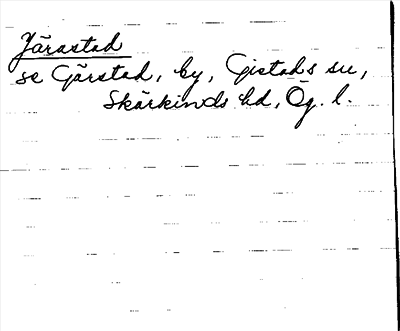 Järastad
se Gärstad, by, Gistads sn,
Skärkinds hd, Ög. l.